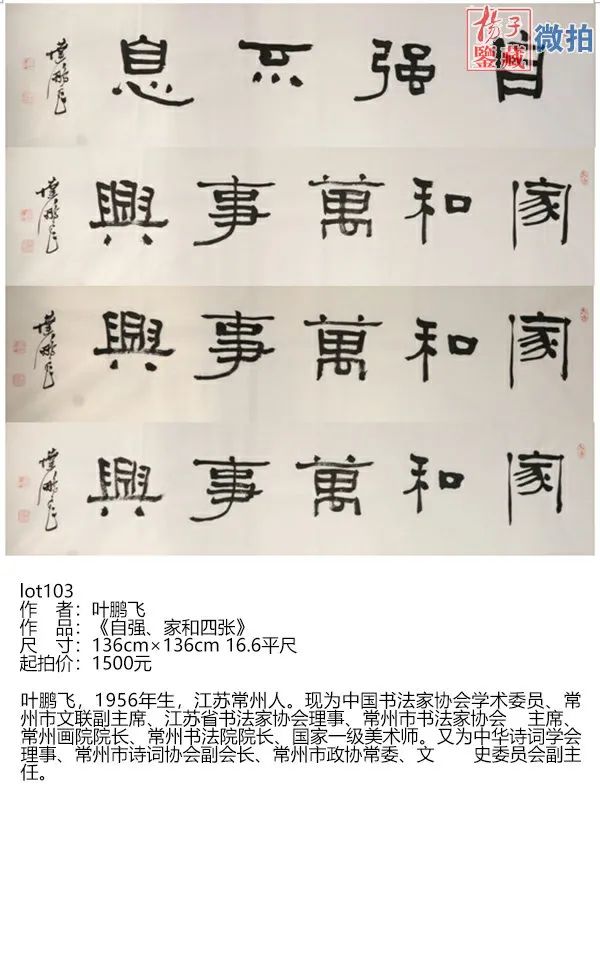 杨子
鑒藏
微拍
自强不息
家和萬事興
家和萬事興
家和萬事興
lot103
作　者：叶鹏飞
作　品：《自强、家和四张》
尺　寸：136cm×136cm 16.6平尺
起拍价：1500元
叶鹏飞，1956年生，江苏常州人。现为中国书法家协会学术委员、常
州市文联副主席、江苏省书法家协会理事、常州市书法家协会　主席、
常州画院院长、常州书法院院长、国家一级美术师。又为中华诗词学会
理事、常州市诗词协会副会长、常州市政协常委、文　　史委员会副主
任。